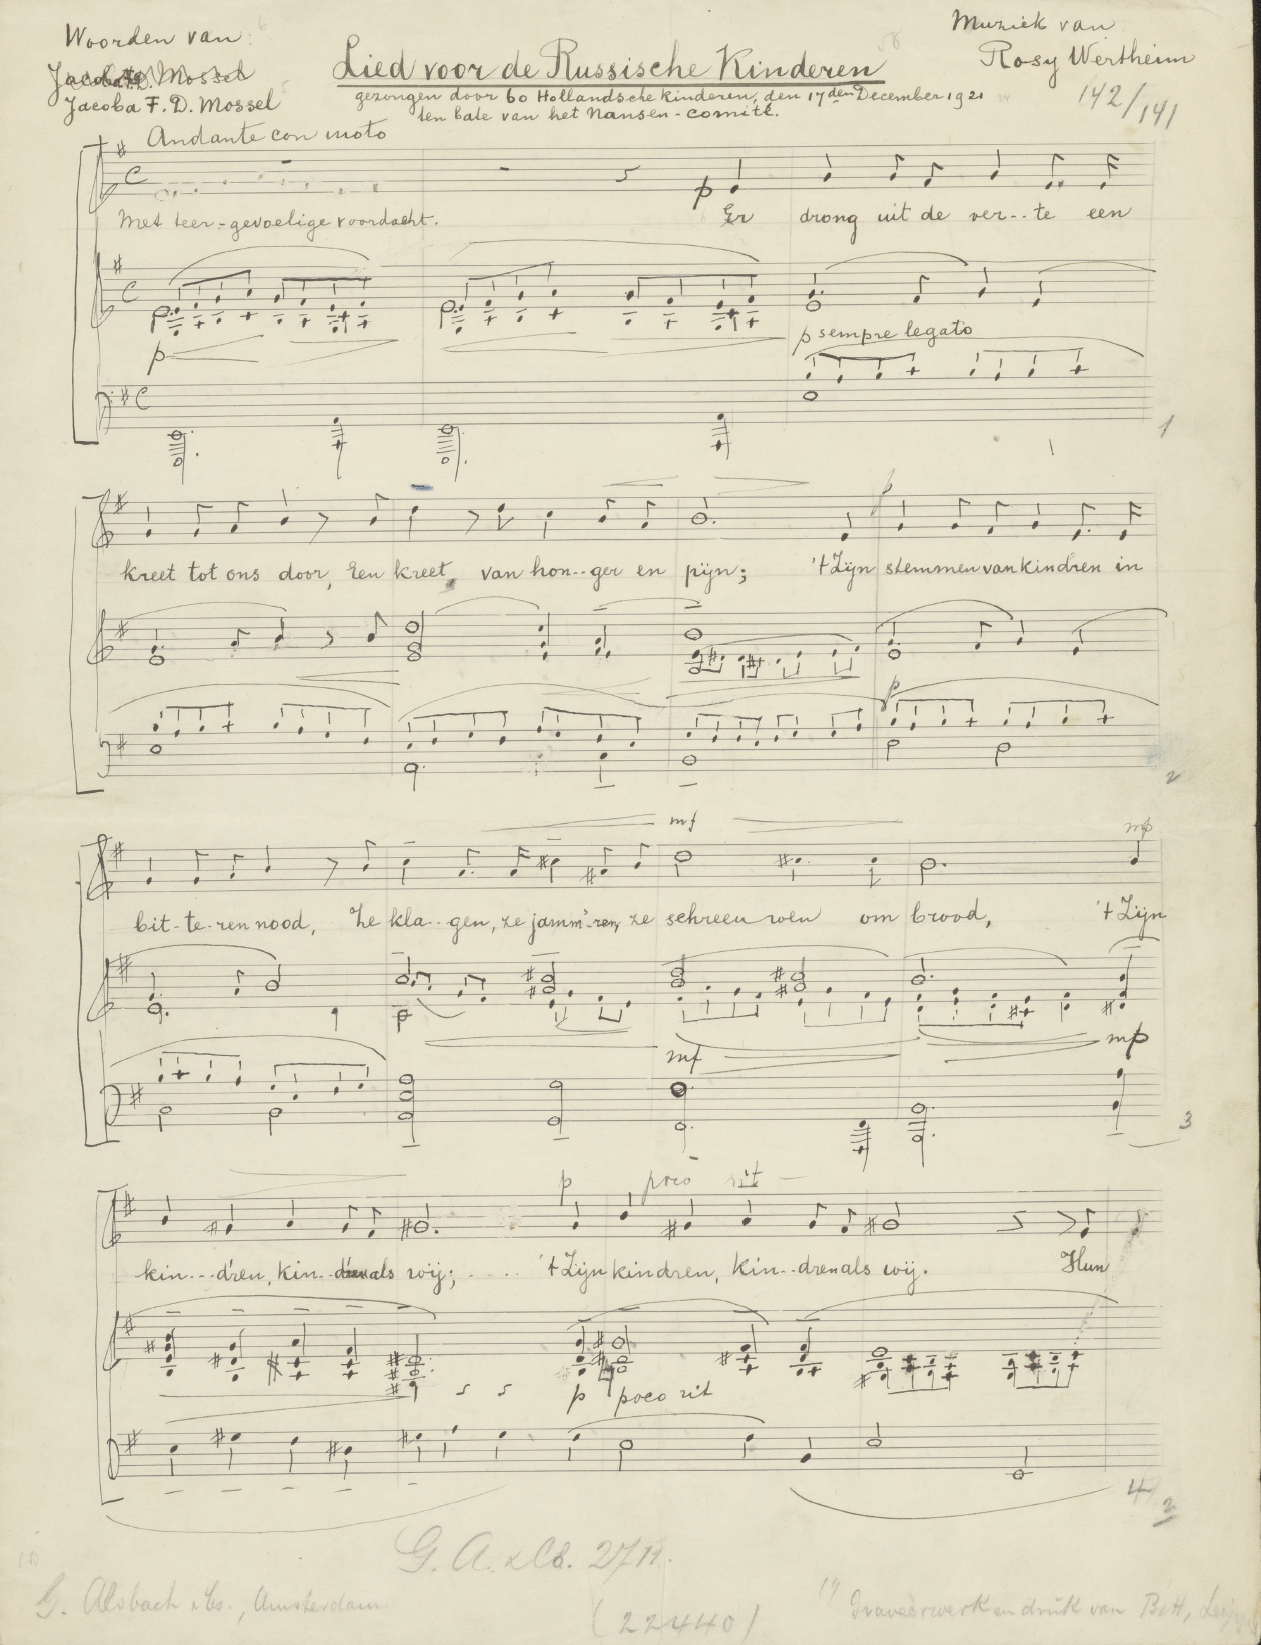 Woorden van
Jacoba F. D. Mossel
Muziek van
Rosy Wertheim
142/141
Lied voor de Russische Kinderen
gezongen door 60 Hollandsche kinderen, den 17den December 1921
ten bate van het Nansen-comité.
Andante con moto
p
Met teer-gevoelige voordacht.
Er drong uit de ver--te een
p
p sempre legato
1
p
kreet tot ons door, Een kreet, van hon--ger en pijn; 't Zijn stemmen van kindren in
p
2
mf
mp
bit-te-ren nood, Ze kla--gen, ze jamm'-ren, ze schreeuwen om brood, 't Zijn
mf
mp
3
p poco rit
kin---d'ren, kin--dren als wij; .... 't Zijn kindren, kin--dren als wij. Hun
p poco rit
4
2
G. A. & Co. 2712.
G. Alsbach & Co., Amsterdam
(22440)
Graveerwerk en druk van